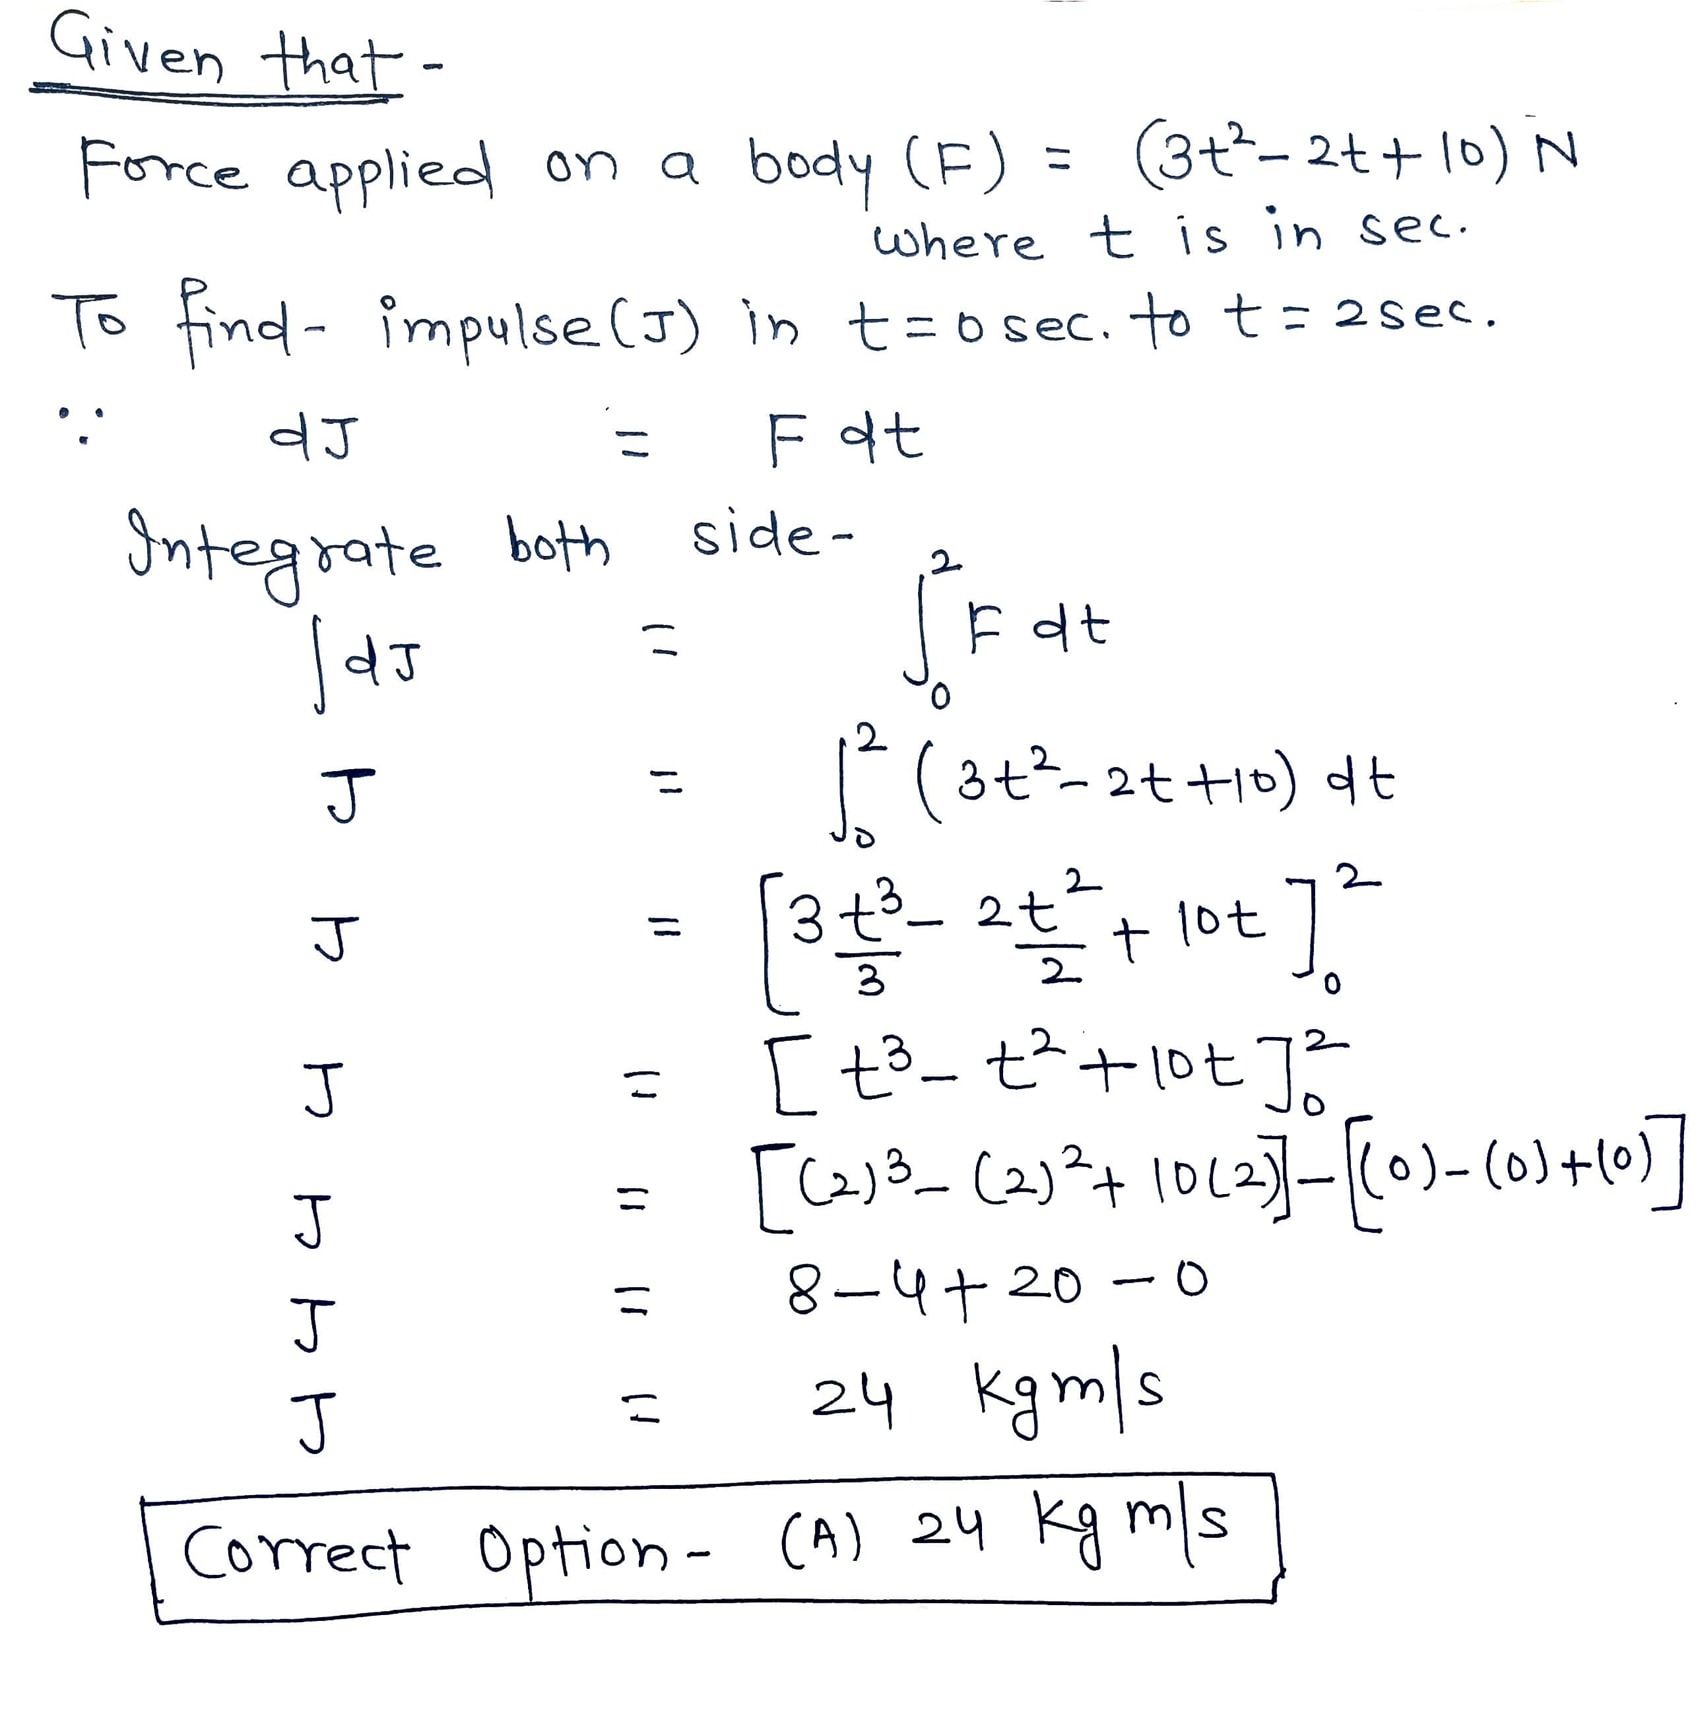 Given that -
Force applied on a body (F) = (3t² - 2t + 10) N
where t is in sec.
To find - impulse (J) in t = 0 sec. to t = 2 sec.
∵ dJ = F dt
Integrate both side -
∫dJ = ∫₀² F dt
J = ∫₀² (3t² - 2t + 10) dt
J = [3 t³/3 - 2 t²/2 + 10t]₀²
J = [t³ - t² + 10t]₀²
J = [(2)³ - (2)² + 10(2)] - [(0) - (0) + (0)]
J = 8 - 4 + 20 - 0
J = 24 kgm/s
Correct Option - (A) 24 kg m/s